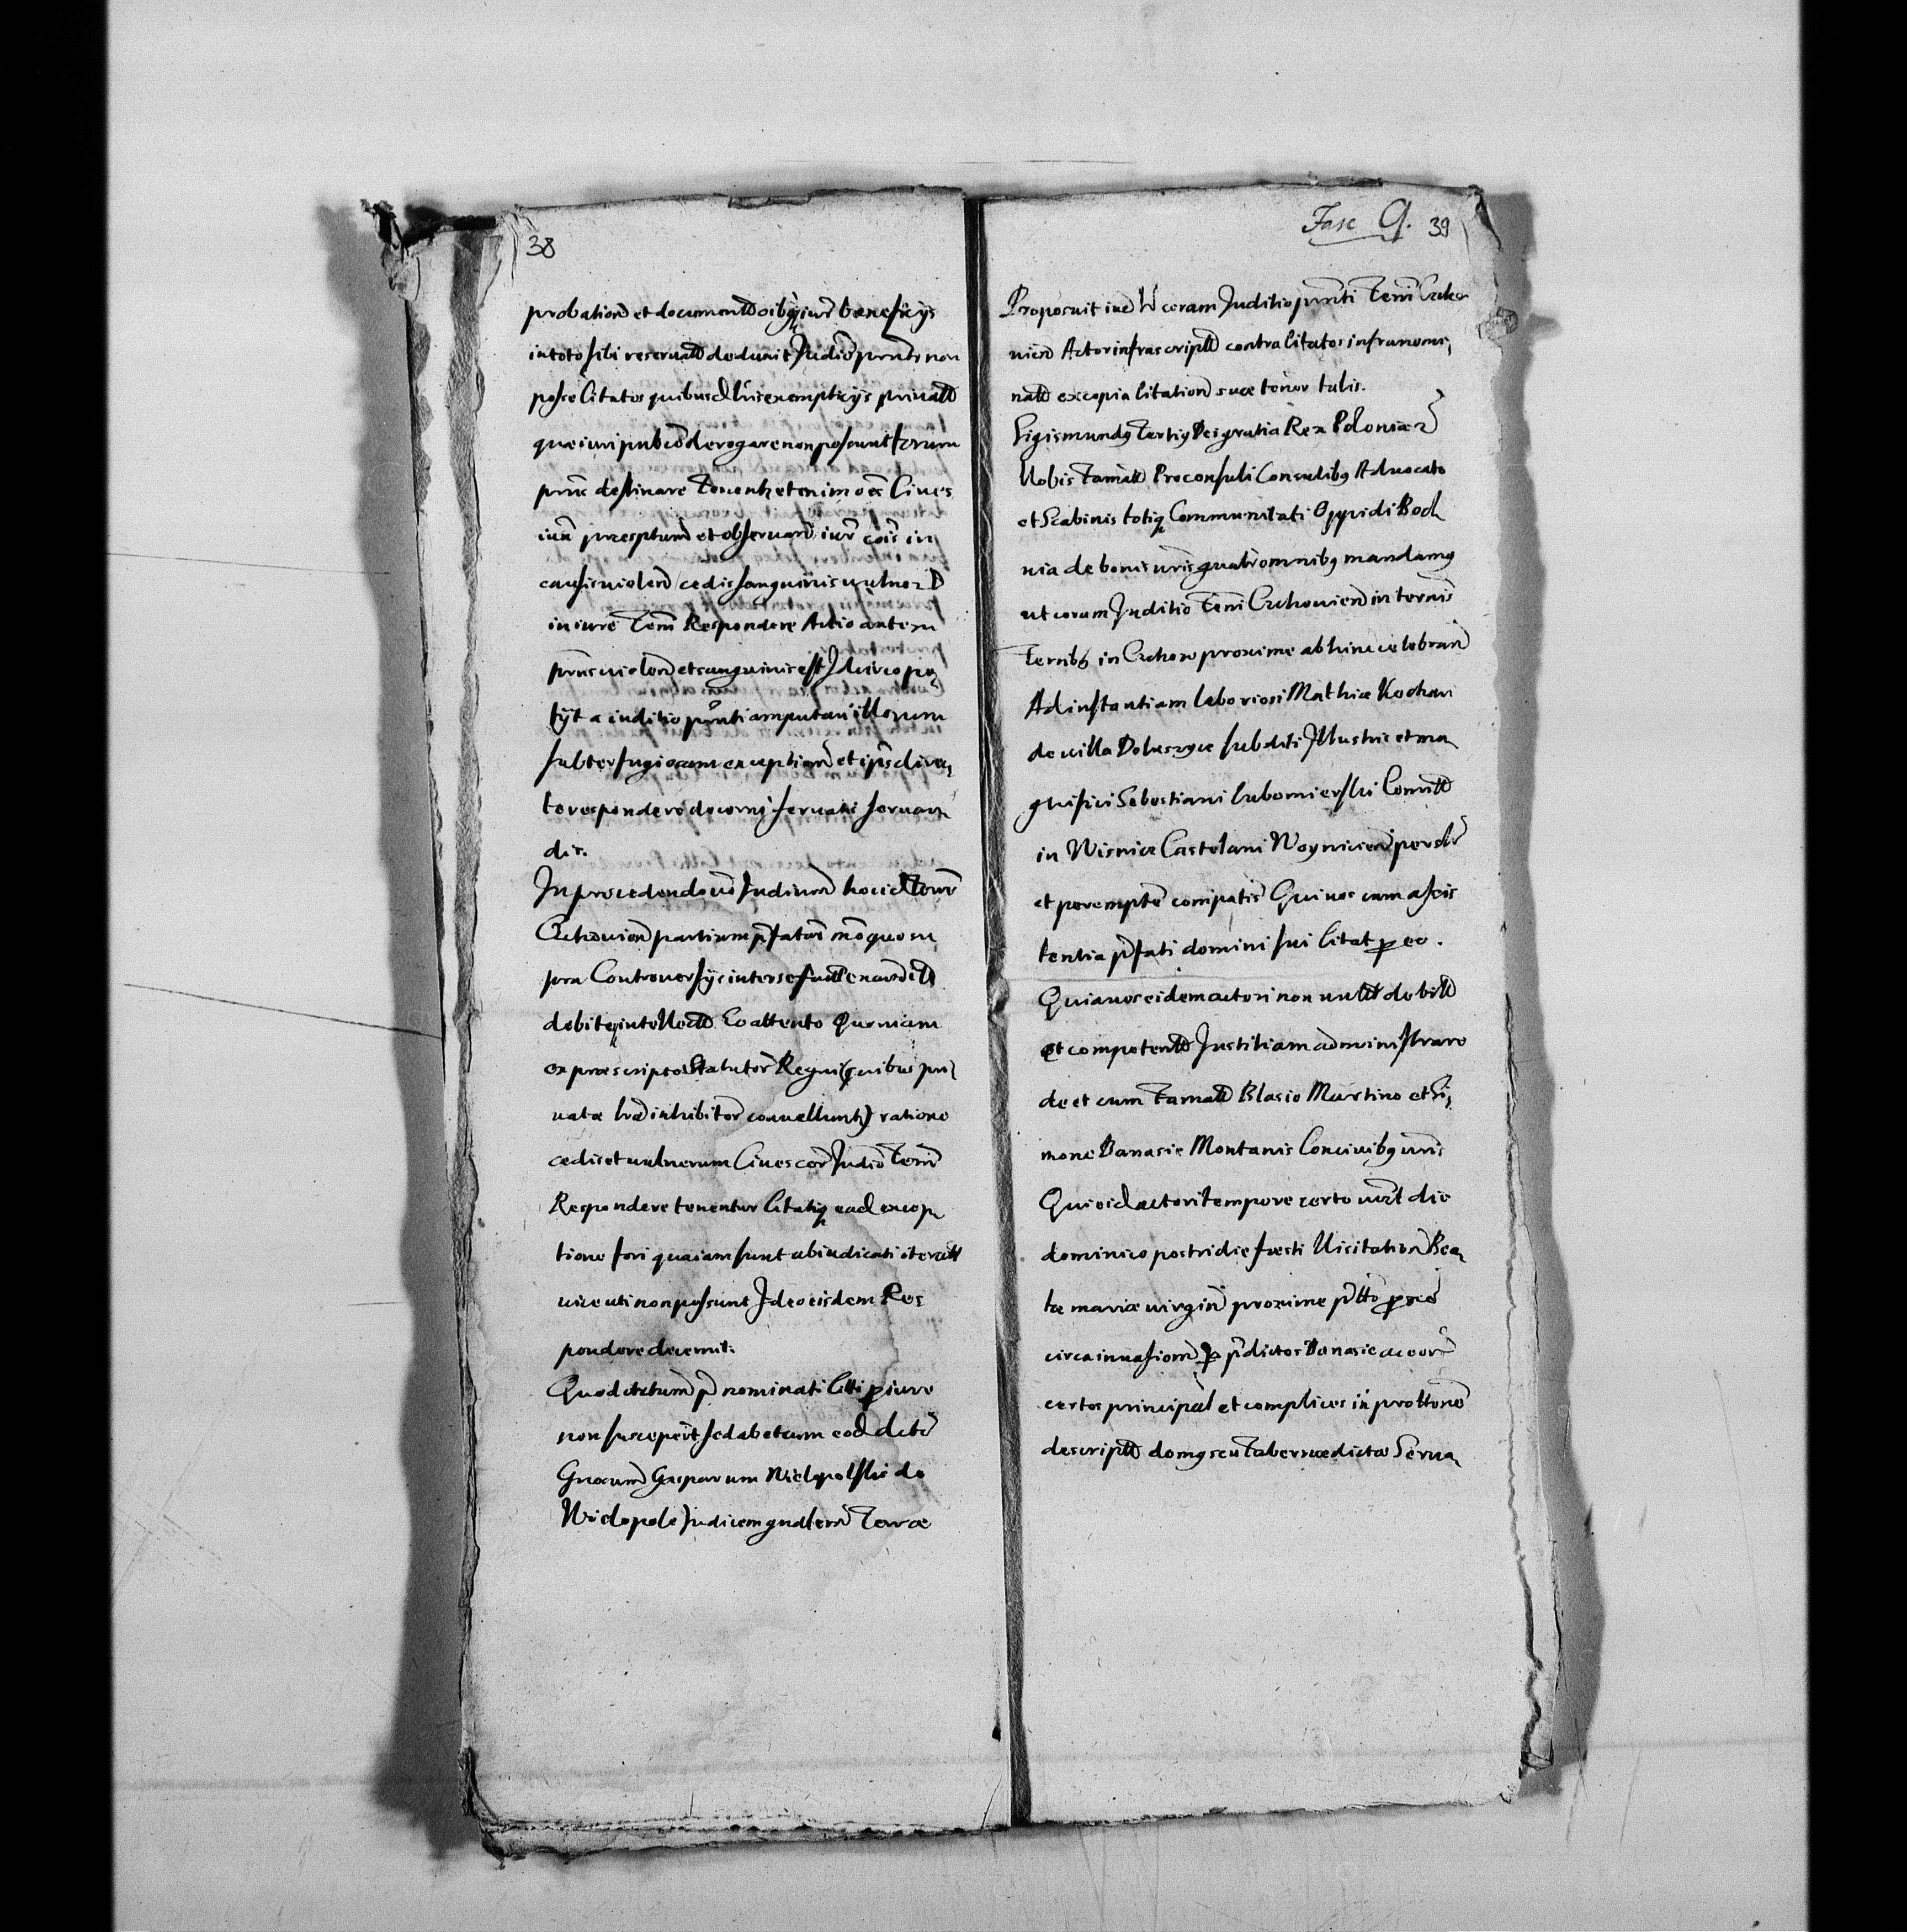 38
probation et documentis oibusq iuris beneficijs
in toto sibi reservatis deduxit Judicio prnti non
posse Citatos quibusd lris exempticijs privatis
quæ iuri publico derogare non possunt forum
prns destinare Tenentr etenim oes Cives
iuxta præscptum et observan iuris cois in
causis violen cedis sanguinis vulner
in iure Terri Respondere Actio autem
prns violen et sanguinis est Idcirco pe
tijt a iuditio prnti amputari illorum
subterfugiosam exception et ipsis direc
te respondere decerni servatis servan
dis.
In procedendo vero Judicium hocce Terre
Czchovien partium pfatar mo quo su
pra Controversijs inter se
debiteq intellectis Eo attento Quoniam
ex præscripto Statutor Regni (quibus pri
vatæ lræ inhibitor convelluntr) ratione
cedis et vulnerum Cives cor Judio Terri
Respondere tenentur Citatiq ead excep
tione fori qua iam sunt abiudicati iterato
vice uti non possunt Ideo eisdem Res
pondere decernit.
Quod decretum p nominati Citti p iure
non susceperit sed ab eterum eod decto
Gnosum Gasparum Wielopolski de
Wielopole Judicem gnalem Terræ
Fasc 9. 39
Proposuit in coram Juditio prnti Terri Czcho
vien Actor infrascriptus contra Citatos infranomi
natos ex copia Citation suæ tenor talis.
Sigismundus Tertius Dei gratia Rex Poloniæ
Vobis Famatis Proconsuli Consulibus Advocato
et Scabinis totiq Communitati Oppidi Boch
nia de bonis vris gnalr omnibus mandamus
ut coram Juditio Terri Czchovien in ternis
Terribus in Czchow proxime ab hinc celebran
Ad instantiam laboriosi Mathiæ Kochan
de villa Doluszyce subditi Illustris et ma
gnifici Sebastiani Lubomierski Comitis
in Wisnicz Castelani Woynicien personlr
et peremptorie compatis Qui vos cum assis
tentia pfati domini sui Citat p eo.
Quia vos eidem actori non vultis debitam
et competentem Justitiam administrare
de et cum Famatis Blasio Martino et Si
mone Banasie Montanis Concivibus vris
Qui eid actori tempore certo vidlt die
dominico postridie festi Visitation Bea
tæ mariæ virginis proxime pttto
circa invasionem p pdictos Banasie ac eor
certos principal et complices in protttone
descriptos domus seu Tabernæ dictæ Serva